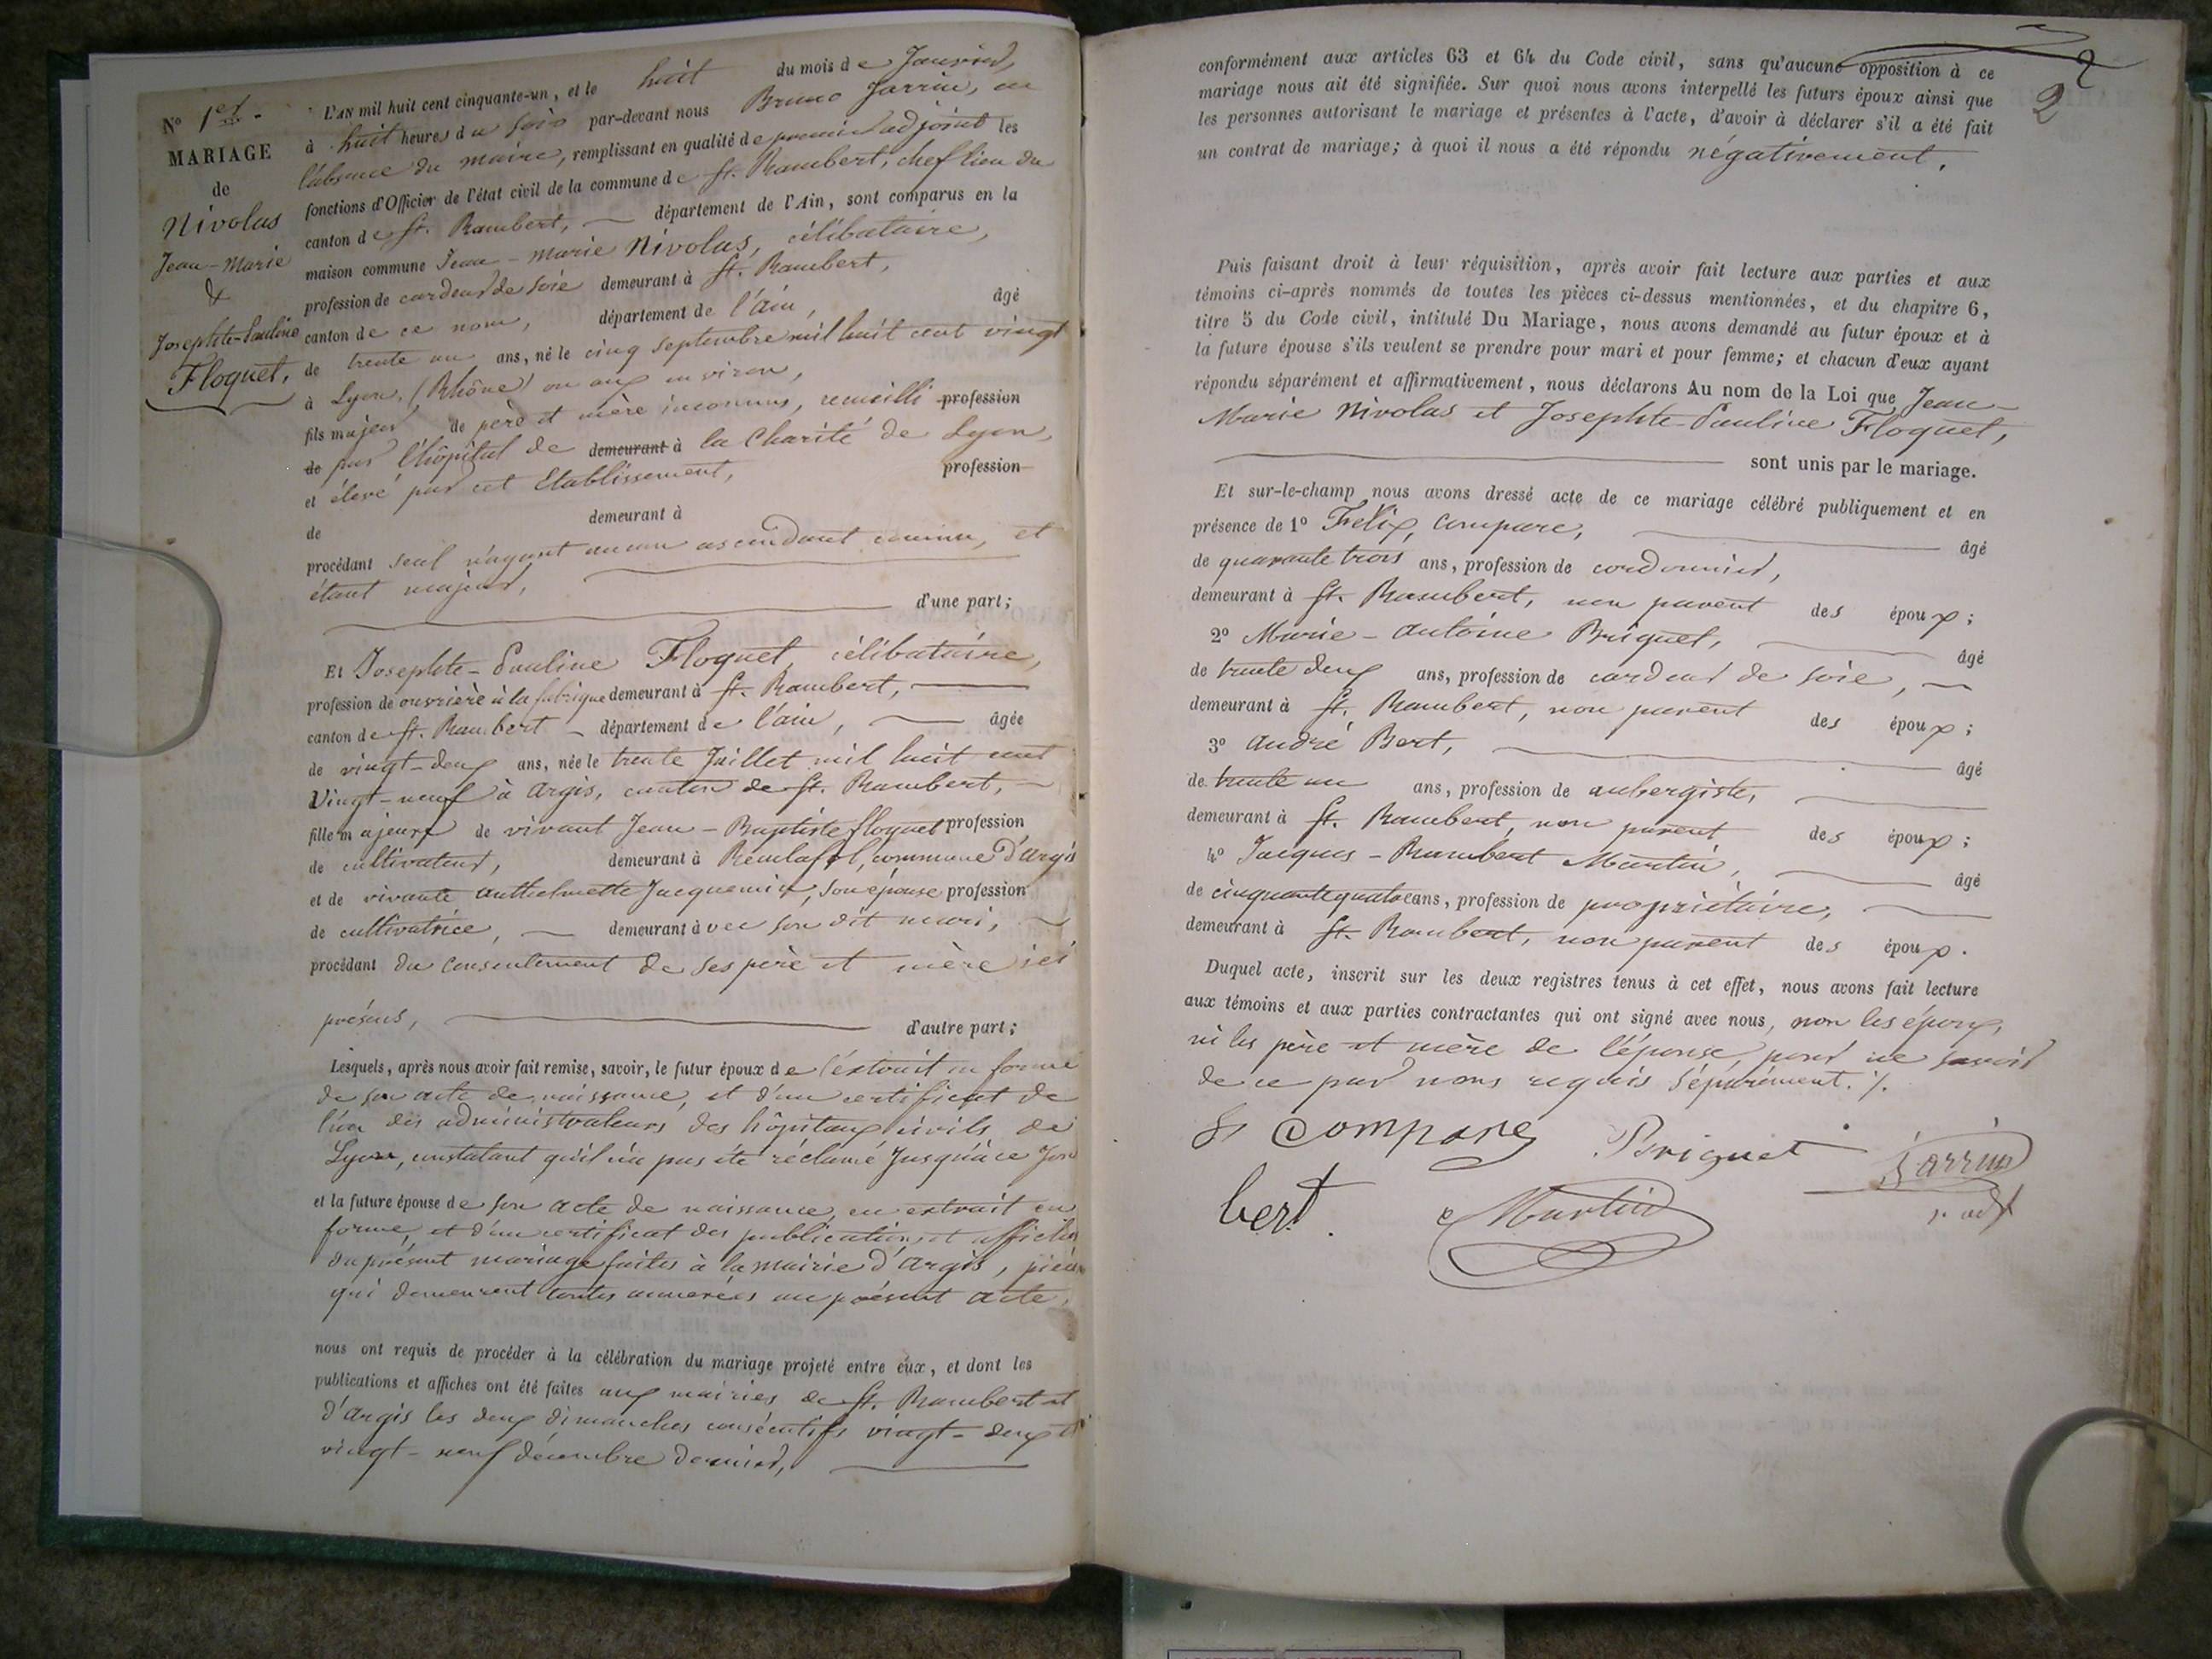 N° 1er.
MARIAGE
de
Nivolas
Jean-Marie
&
Josephte-Pauline
Floquet,
L'AN mil huit cent cinquante-un, et le huit du mois de Janvier,
à huit heures du soir par-devant nous Bruno Jarrin, en
l'absence du maire, remplissant en qualité de premier adjoint les
fonctions d'Officier de l'état civil de la commune de St. Rambert, chef lieu du
canton de St. Rambert, département de l'Ain, sont comparus en la
maison commune Jean-Marie Nivolas, célibataire,
profession de cardeur de soie demeurant à St. Rambert,
canton de ce nom, département de l'ain, âgé
de trente un ans, né le cinq septembre mil huit cent vingt
à Lyon, (Rhône) ou aux environ,
fils majeur de père et mère inconnus, recueilli profession
de par l'hôpital de demeurant à la Charité de Lyon,
et élevé par cet Etablissement, profession
de demeurant à
procédant seul n'ayant aucun ascendant connu, et
étant majeur,
d'une part;
Et Josephte-Pauline Floquet, célibataire,
profession de ouvrière à la fabrique demeurant à St. Rambert,
canton de St. Rambert département de l'ain, âgée
de vingt-deux ans, née le trente Juillet mil huit cent
Vingt-neuf à Argis, canton de St. Rambert,
fille majeure de vivant Jean-Baptiste floquet profession
de cultivateur, demeurant à Reculafol, commune d'Argis
et de vivante Anthelmette Jacquemin, son épouse profession
de cultivatrice, demeurant avec son dit mari,
procédant du consentement de ses père et mère ici
présens,
d'autre part;
Lesquels, après nous avoir fait remise, savoir, le futur époux de l'extrait en forme
de son acte de naissance, et d'un certificat de
l'un des administrateurs des hôpitaux civils de
Lyon, constatant qu'il n'a pas été réclamé jusqu'à ce jour
et la future épouse de son acte de naissance, en extrait en
forme, et d'un certificat des publications et affiches
du présent mariage faites à la mairie d'Argis, pièces
qui demeurent toutes annexées au présent acte,
nous ont requis de procéder à la célébration du mariage projeté entre eux, et dont les
publications et affiches ont été faites aux mairies de St. Rambert et
d'Argis les deux dimanches consécutifs vingt-deux et
vingt-neuf décembre dernier,
2
conformément aux articles 63 et 64 du Code civil, sans qu'aucune opposition à ce
mariage nous ait été signifiée. Sur quoi nous avons interpellé les futurs époux ainsi que
les personnes autorisant le mariage et présentes à l'acte, d'avoir à déclarer s'il a été fait
un contrat de mariage; à quoi il nous a été répondu négativement.
Puis faisant droit à leur réquisition, après avoir fait lecture aux parties et aux
témoins ci-après nommés de toutes les pièces ci-dessus mentionnées, et du chapitre 6,
titre 5 du Code civil, intitulé Du Mariage, nous avons demandé au futur époux et à
la future épouse s'ils veulent se prendre pour mari et pour femme; et chacun d'eux ayant
répondu séparément et affirmativement, nous déclarons Au nom de la Loi que Jean-
Marie Nivolas et Josephte-Pauline Floquet,
sont unis par le mariage.
Et sur-le-champ nous avons dressé acte de ce mariage célébré publiquement et en
présence de 1° Felix, Compare, âgé
de quarante trois ans, profession de cordonnier,
demeurant à St. Rambert, non parent des époux;
2° Marie-Antoine Briquet, âgé
de trente deux ans, profession de cardeur de soie,
demeurant à St. Rambert, non parent des époux;
3° André Bert, âgé
de trente un ans, profession de aubergiste,
demeurant à St. Rambert, non parent des époux;
4° Jacques-Rambert Martin, âgé
de cinquante quatre ans, profession de propriétaire,
demeurant à St. Rambert, non parent des époux.
Duquel acte, inscrit sur les deux registres tenus à cet effet, nous avons fait lecture
aux témoins et aux parties contractantes qui ont signé avec nous, non les époux,
ni les père et mère de l'épouse, pour ne savoir
de ce par nous requis séparément. /.
Compare Briquet Jarrin
bert. Martin